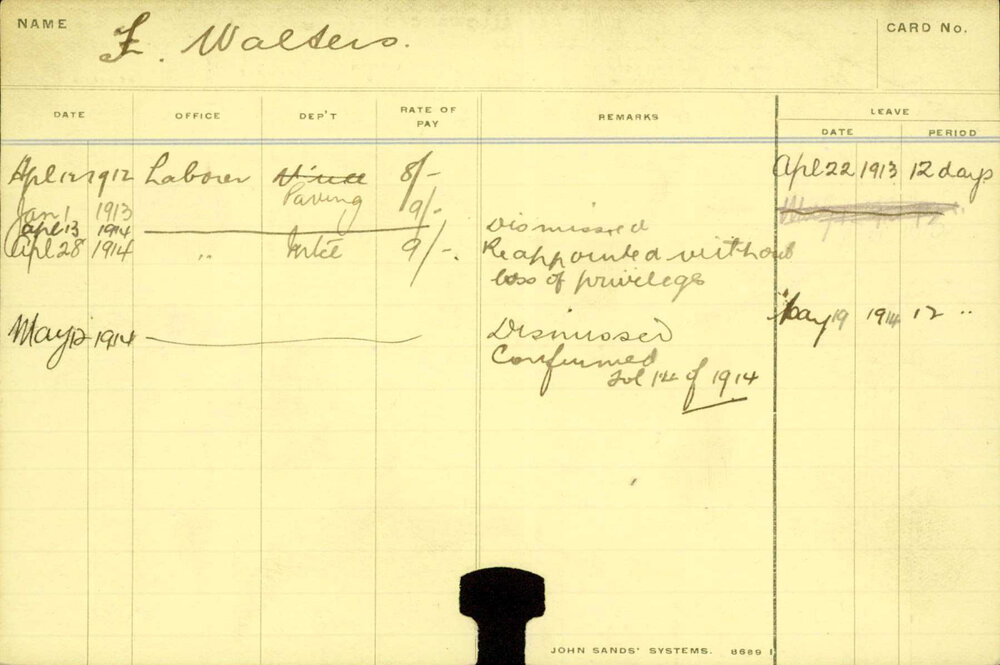 NAME
F. Walters.
CARD No.
DATE OFFICE DEP'T RATE OF PAY REMARKS LEAVE
DATE PERIOD
Apl 1912 Laborer 8/- Apl 22 1913 12 days
Paving
Jan 1 1913 9/-
Apl 13 1914 Dismissed
Apl 28 1914 " 9/-. Reappointed without
loss of privileges
May 19 1914 12 "
May 1914 Dismissed
Confirmed
of 1914
JOHN SANDS' SYSTEMS. 8689